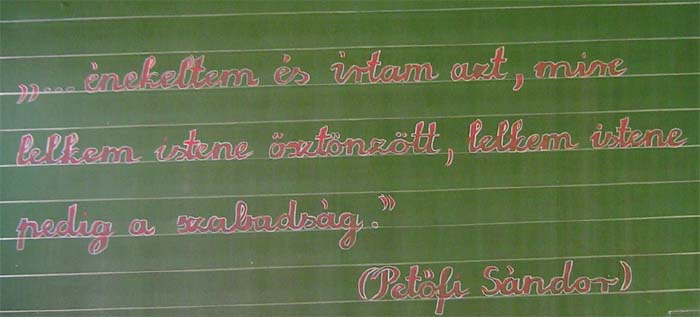 „... énekeltem és írtam azt, mire
lelkem istene ösztönzött, lelkem istene
pedig a szabadság.”
(Petőfi Sándor)